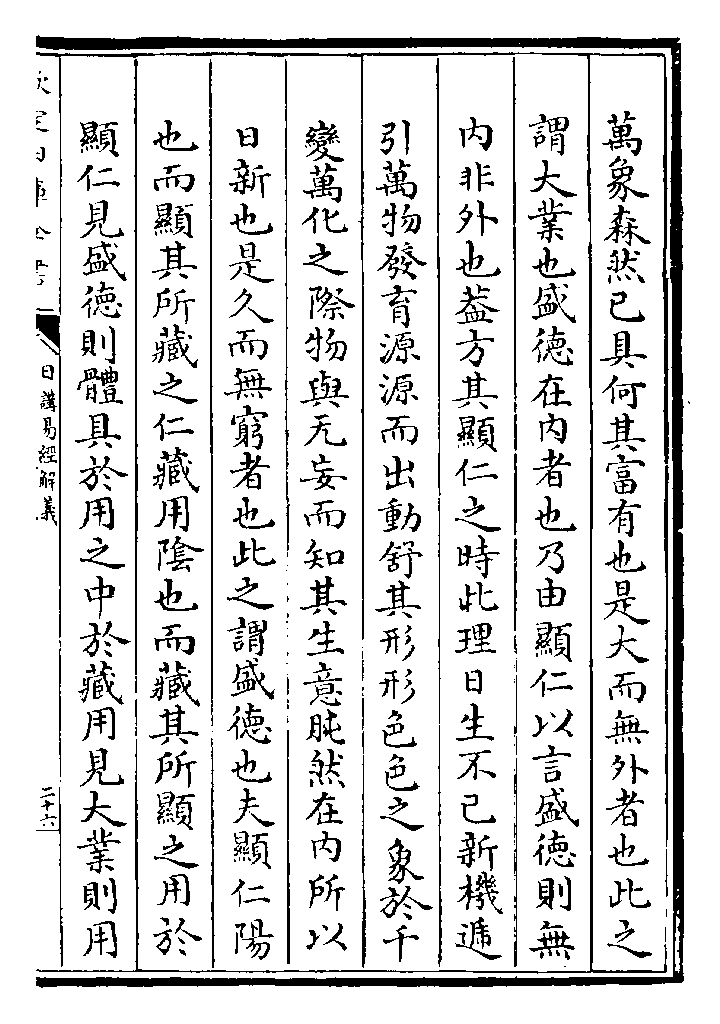 萬象森然已具何其富有也是大而無外者也此之
謂大業也盛德在内者也乃由顯仁以言盛德則無
内非外也葢方其顯仁之時此理日生不已新機遞
引萬物發育源源而出動舒其形形色色之象於千
變萬化之際物與无妄而知其生意肫然在内所以
日新也是久而無窮者也此之謂盛德也夫顯仁陽
也而顯其所藏之仁藏用陰也而藏其所顯之用於
顯仁見盛德則體具於用之中於藏用見大業則用
日講易經解義
二十六